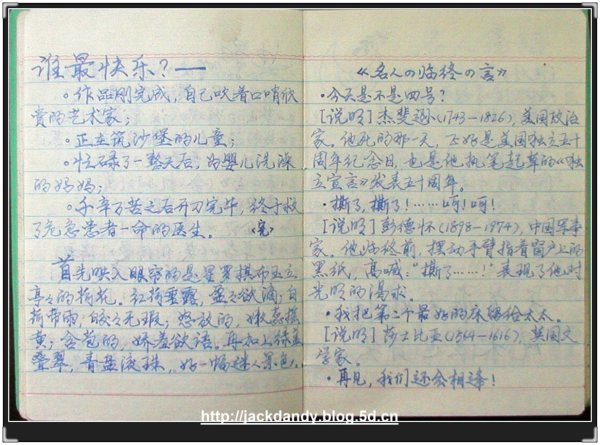 谁最快乐?——
。作品刚完成,自己吹着口哨欣
赏的艺术家;
。正在筑沙堡的儿童;
。忙碌了一整天后,为婴儿洗澡
的妈妈;
。千辛万苦之后开刀完毕,终于救
了危急患者一命的医生。 (完)
首先映入眼帘的是星罗棋布玉立
亭々的荷花。红荷垂露,盈々欲滴;白
荷带雨,皎々无瑕;怒放的,嫩蕊摇
黄;含苞的,娇羞欲语。再加上绿盖
叠翠,青盘滚珠,好一幅迷人景色!
《名人の临终の言》
·今天是不是四号?
[说明]杰斐逊(1743-1826),美国政治
家。他死的那一天,正好是美国独立五十
周年纪念日,也是他执笔起草的《独
立宣言》发表五十周年。
·撕了,撕了!……呵!呵!
[说明]彭德怀(1898-1974),中国军事
家。他临终前,摆动手臂指着窗户上的
黑纸,高喊:"撕了……!"表现了他对
光明的渴求。
·我把第二个最好的床留给太太。
[说明]莎士比亚(1564-1616),英国文
学家。
·再见,我们还会相逢!
http://jackdandy.blog.5d.cn